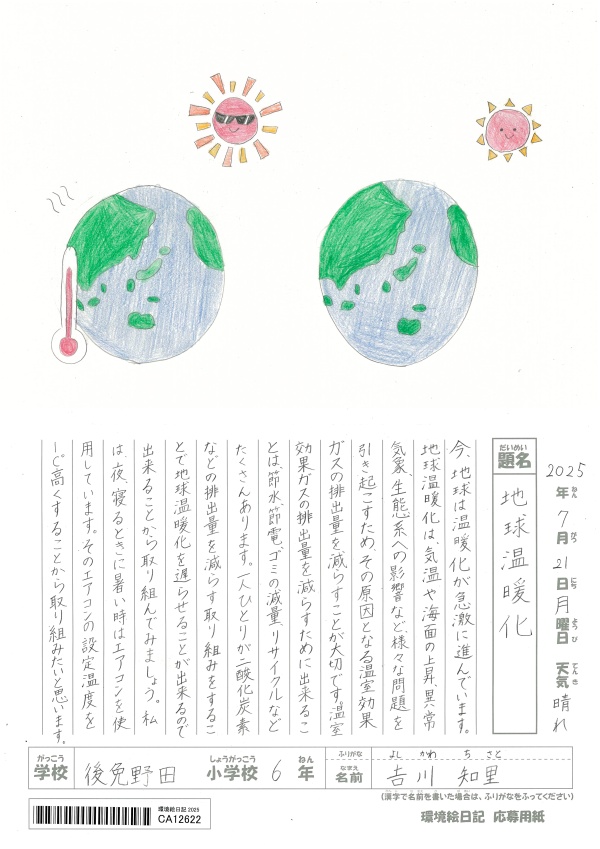 2025年ねん7月がつ21日にち月曜日ようび 天気てんき 晴れ
だいめい
題名
地球温暖化
今、地球は温暖化が急激に進んでいます。
地球温暖化は、気温や海面の上昇、異常
気象、生態系への影響など、様々な問題を
引き起こすため、その原因となる温室効果
ガスの排出量を減らすことが大切です。温室
効果ガスの排出量を減らすために出来るこ
とは、節水、節電、ゴミの減量、リサイクルなど
たくさんあります。一人ひとりが二酸化炭素
などの排出量を減らす取り組みをするこ
とで地球温暖化を遅らせることが出来るので
出来ることから取り組んでみましょう。私
は、夜、寝るときに暑い時はエアコンを使
用しています。そのエアコンの設定温度を
一ど高くすることから取り組みたいと思います。
がっこう しょうがっこう ねん
学校 後免野田 小学校 6 年
ふりがな よし かわ ち さと
なまえ
名前 吉川 知里
(漢字で名前を書いた場合は、ふりがなをふってください)
環境絵日記 応募用紙
環境絵日記 2025
CA12622